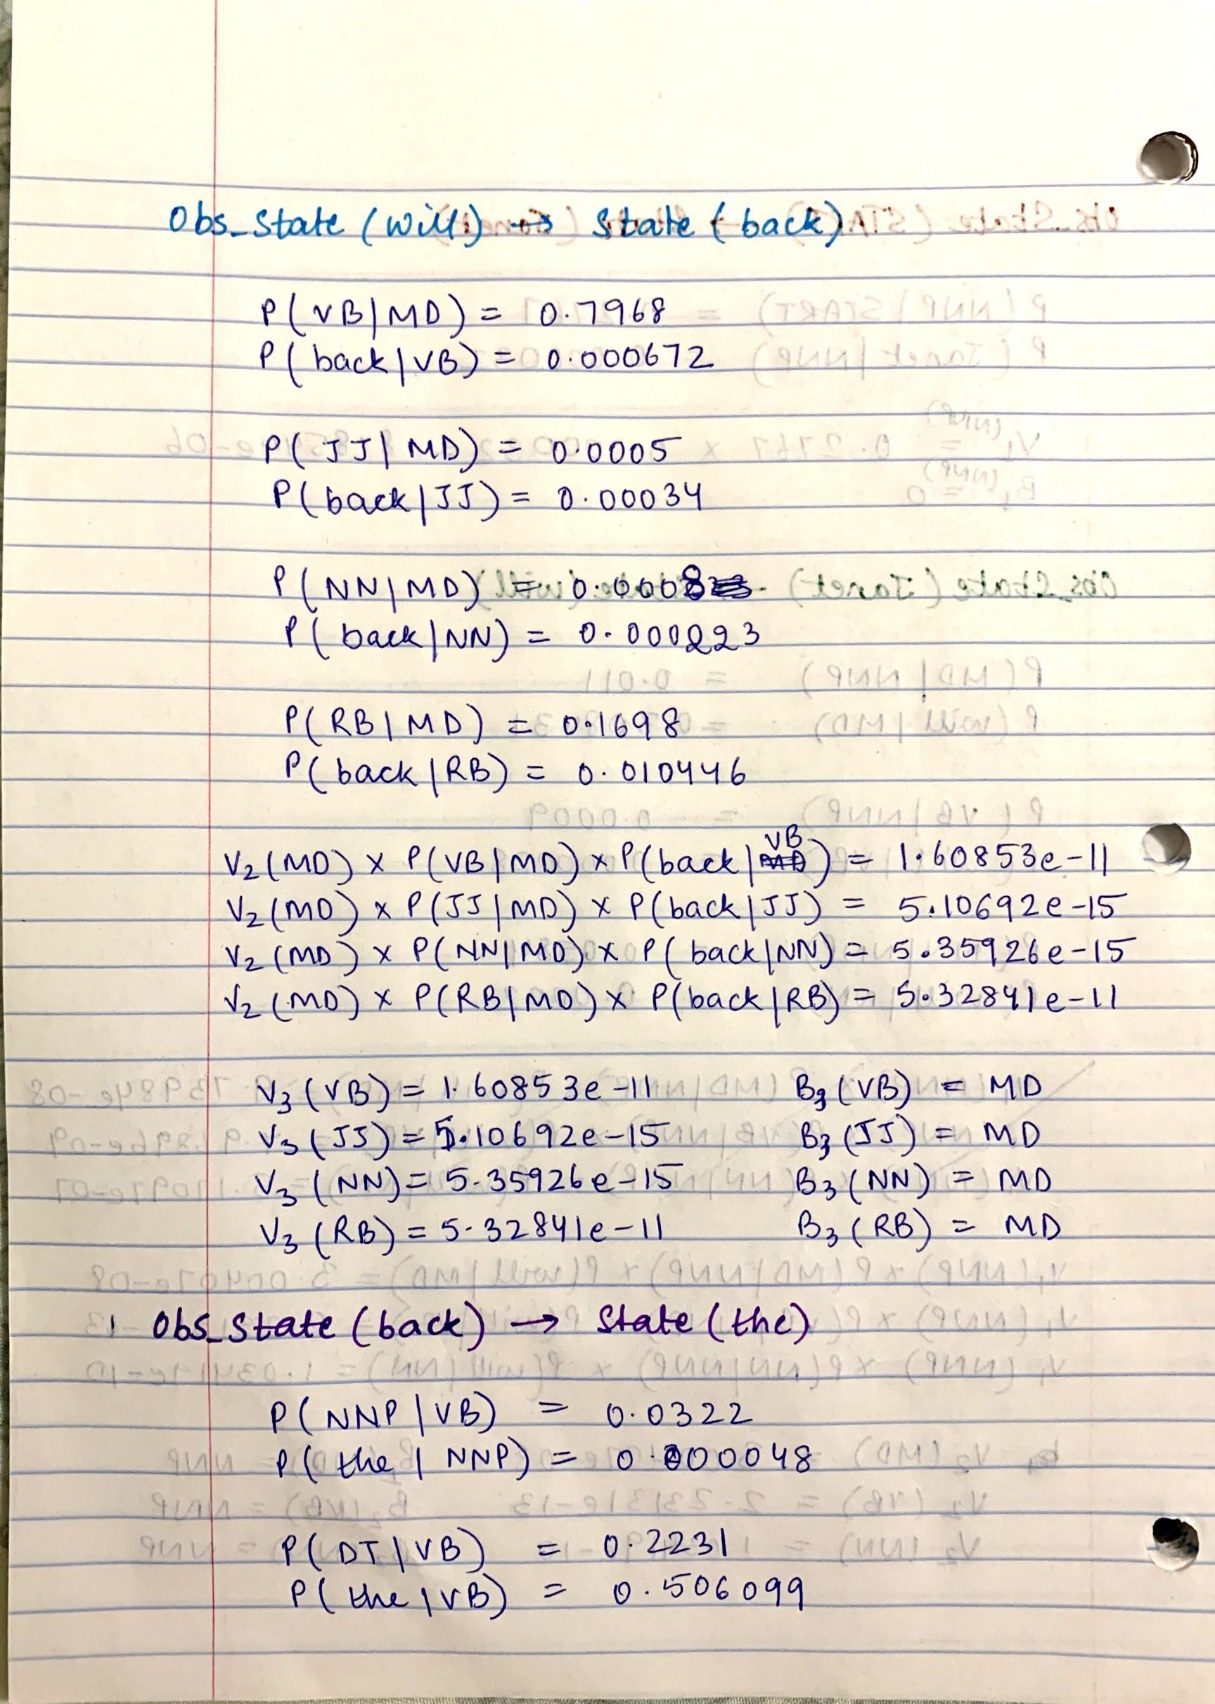 Obs_State (will) → State (back)
P(VB|MD) = 0.7968
P(back|VB) = 0.000672
P(JJ|MD) = 0.0005
P(back|JJ) = 0.00034
P(NN|MD) = 0.0008
P(back|NN) = 0.000223
P(RB|MD) = 0.1698
P(back|RB) = 0.010446
V₂(MD) x P(VB|MD) x P(back|VB) = 1.60853e-11
V₂(MD) x P(JJ|MD) x P(back|JJ) = 5.10692e-15
V₂(MD) x P(NN|MD) x P(back|NN) = 5.35926e-15
V₂(MD) x P(RB|MD) x P(back|RB) = 5.32841e-11
V₃(VB) = 1.60853e-11 B₃(VB) = MD
V₃(JJ) = 5.10692e-15 B₃(JJ) = MD
V₃(NN) = 5.35926e-15 B₃(NN) = MD
V₃(RB) = 5.32841e-11 B₃(RB) = MD
Obs_State (back) → State (the)
P(NNP|VB) = 0.0322
P(the|NNP) = 0.000048
P(DT|VB) = 0.2231
P(the|VB) = 0.506099